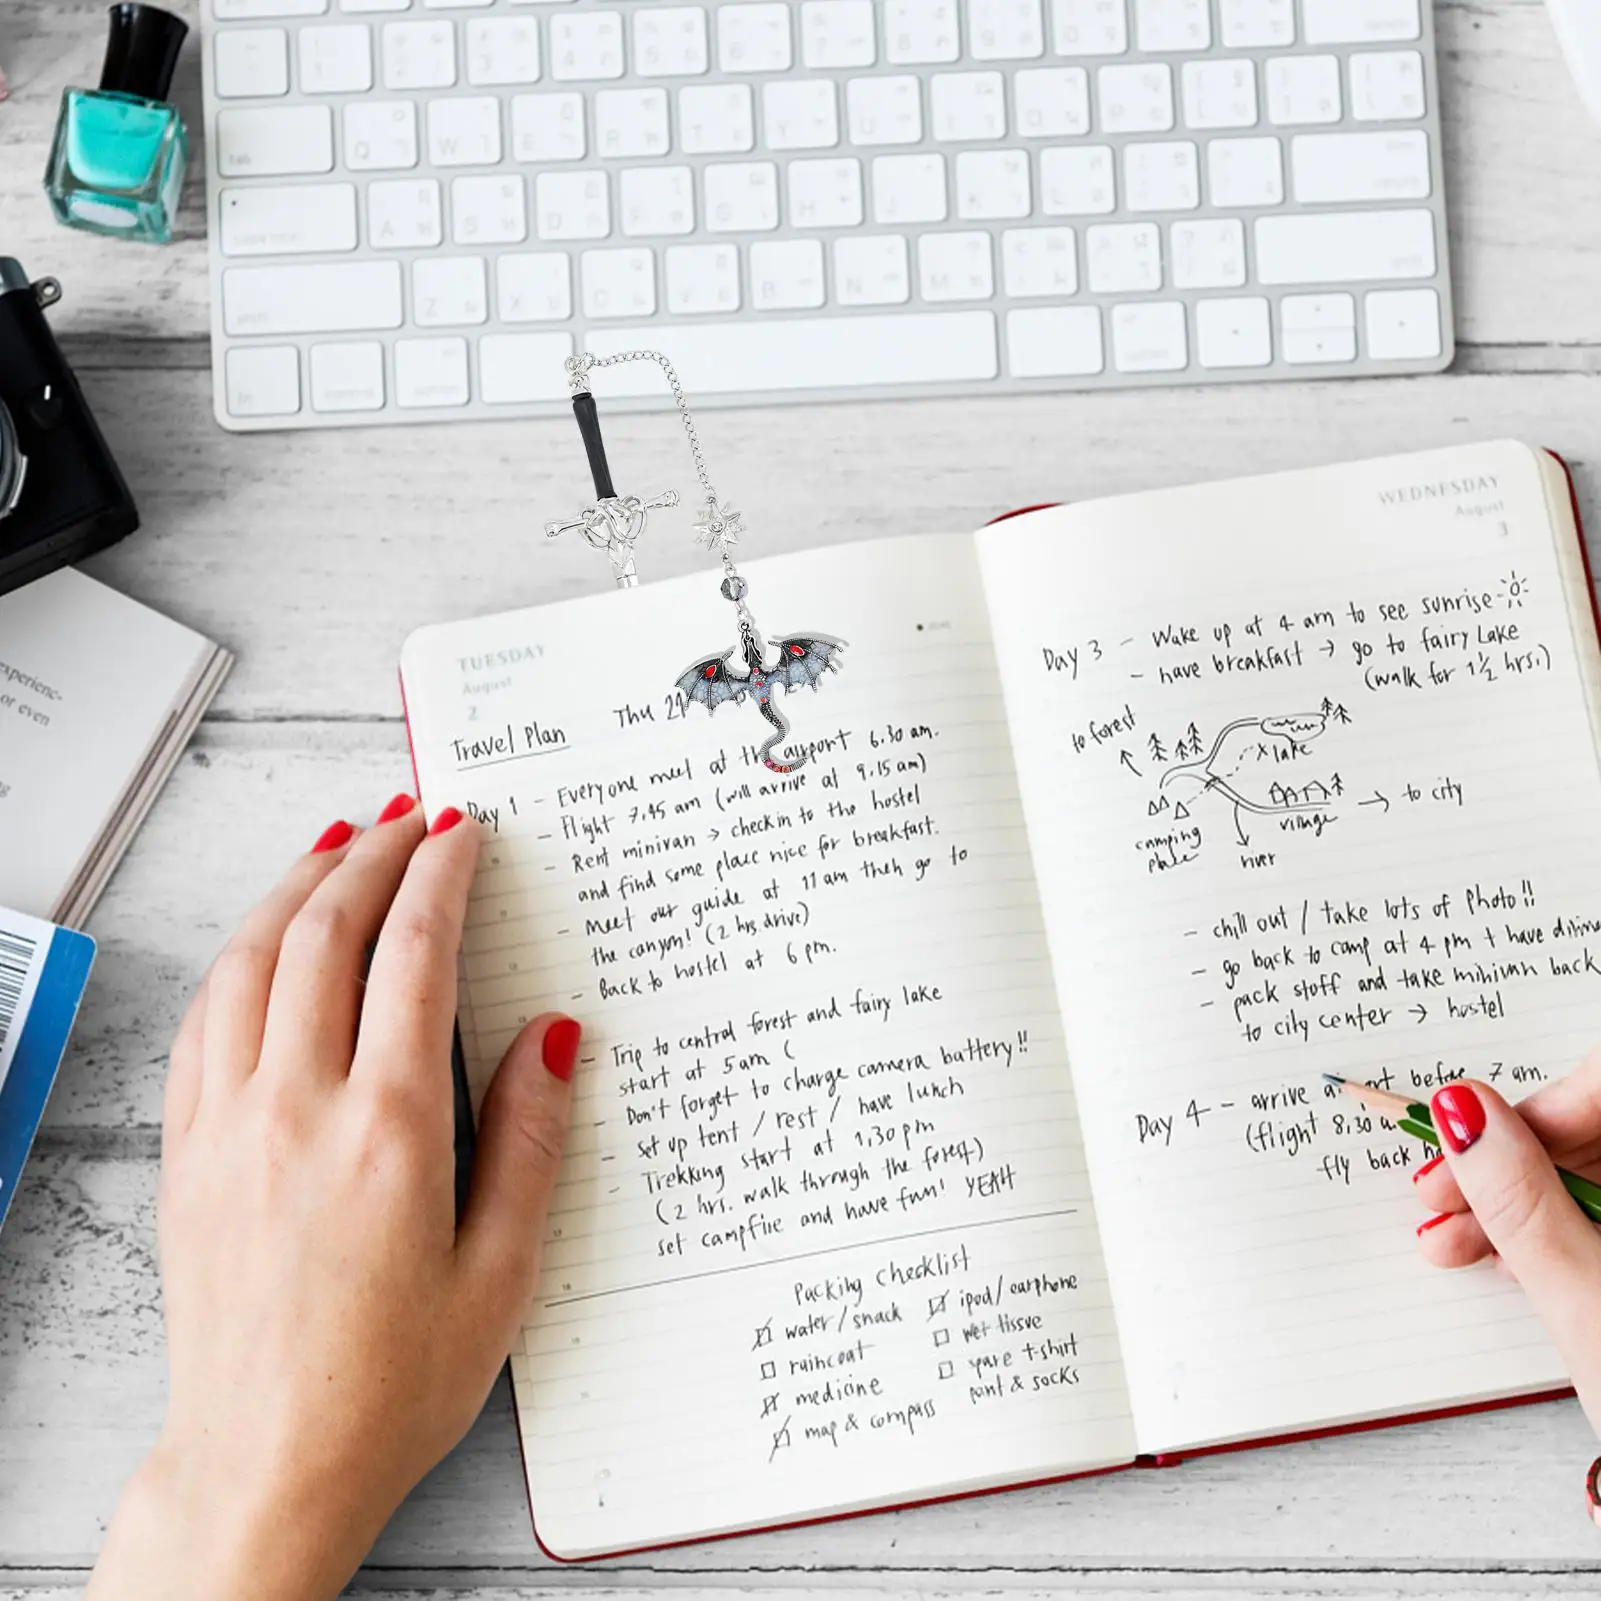 Q W E R T Y U
A S D F G H J K L
Z X C V B N M
experienc-
or even
TUESDAY
August
2
Travel Plan
Thu 27
Day 1 - Everyone meet at the airport 6.30 am.
- Flight 7.45 am (will arrive at 9.15 am)
- Rent minivan → check in to the hostel
and find some place nice for breakfast.
- Meet our guide at 11 am then go to
the canyon! (2 hrs drive)
- Back to hostel at 6 pm.
- Trip to central forest and fairy lake
start at 5 am (
- Don't forget to charge camera battery!!
- set up tent / rest / have lunch
- Trekking start at 1.30 pm
(2 hrs. walk through the forest)
set campfire and have fun! YEAH
Packing Checklist
water/snack
raincoat
medicine
map & compass
ipod/earphone
wet tissue
spare t-shirt
pant & socks
WEDNESDAY
August
3
Day 3 - Wake up at 4 am to see sunrise
- have breakfast → go to fairy Lake
(walk for 1 ½ hrs.)
to forest
x lake
→ to city
village
camping
place
river
- chill out / take lots of photo!!
- go back to camp at 4 pm + have dinne
- pack stuff and take minivan back
to city center → hostel
Day 4 - arrive before 7 am.
(flight 8.30
fly back